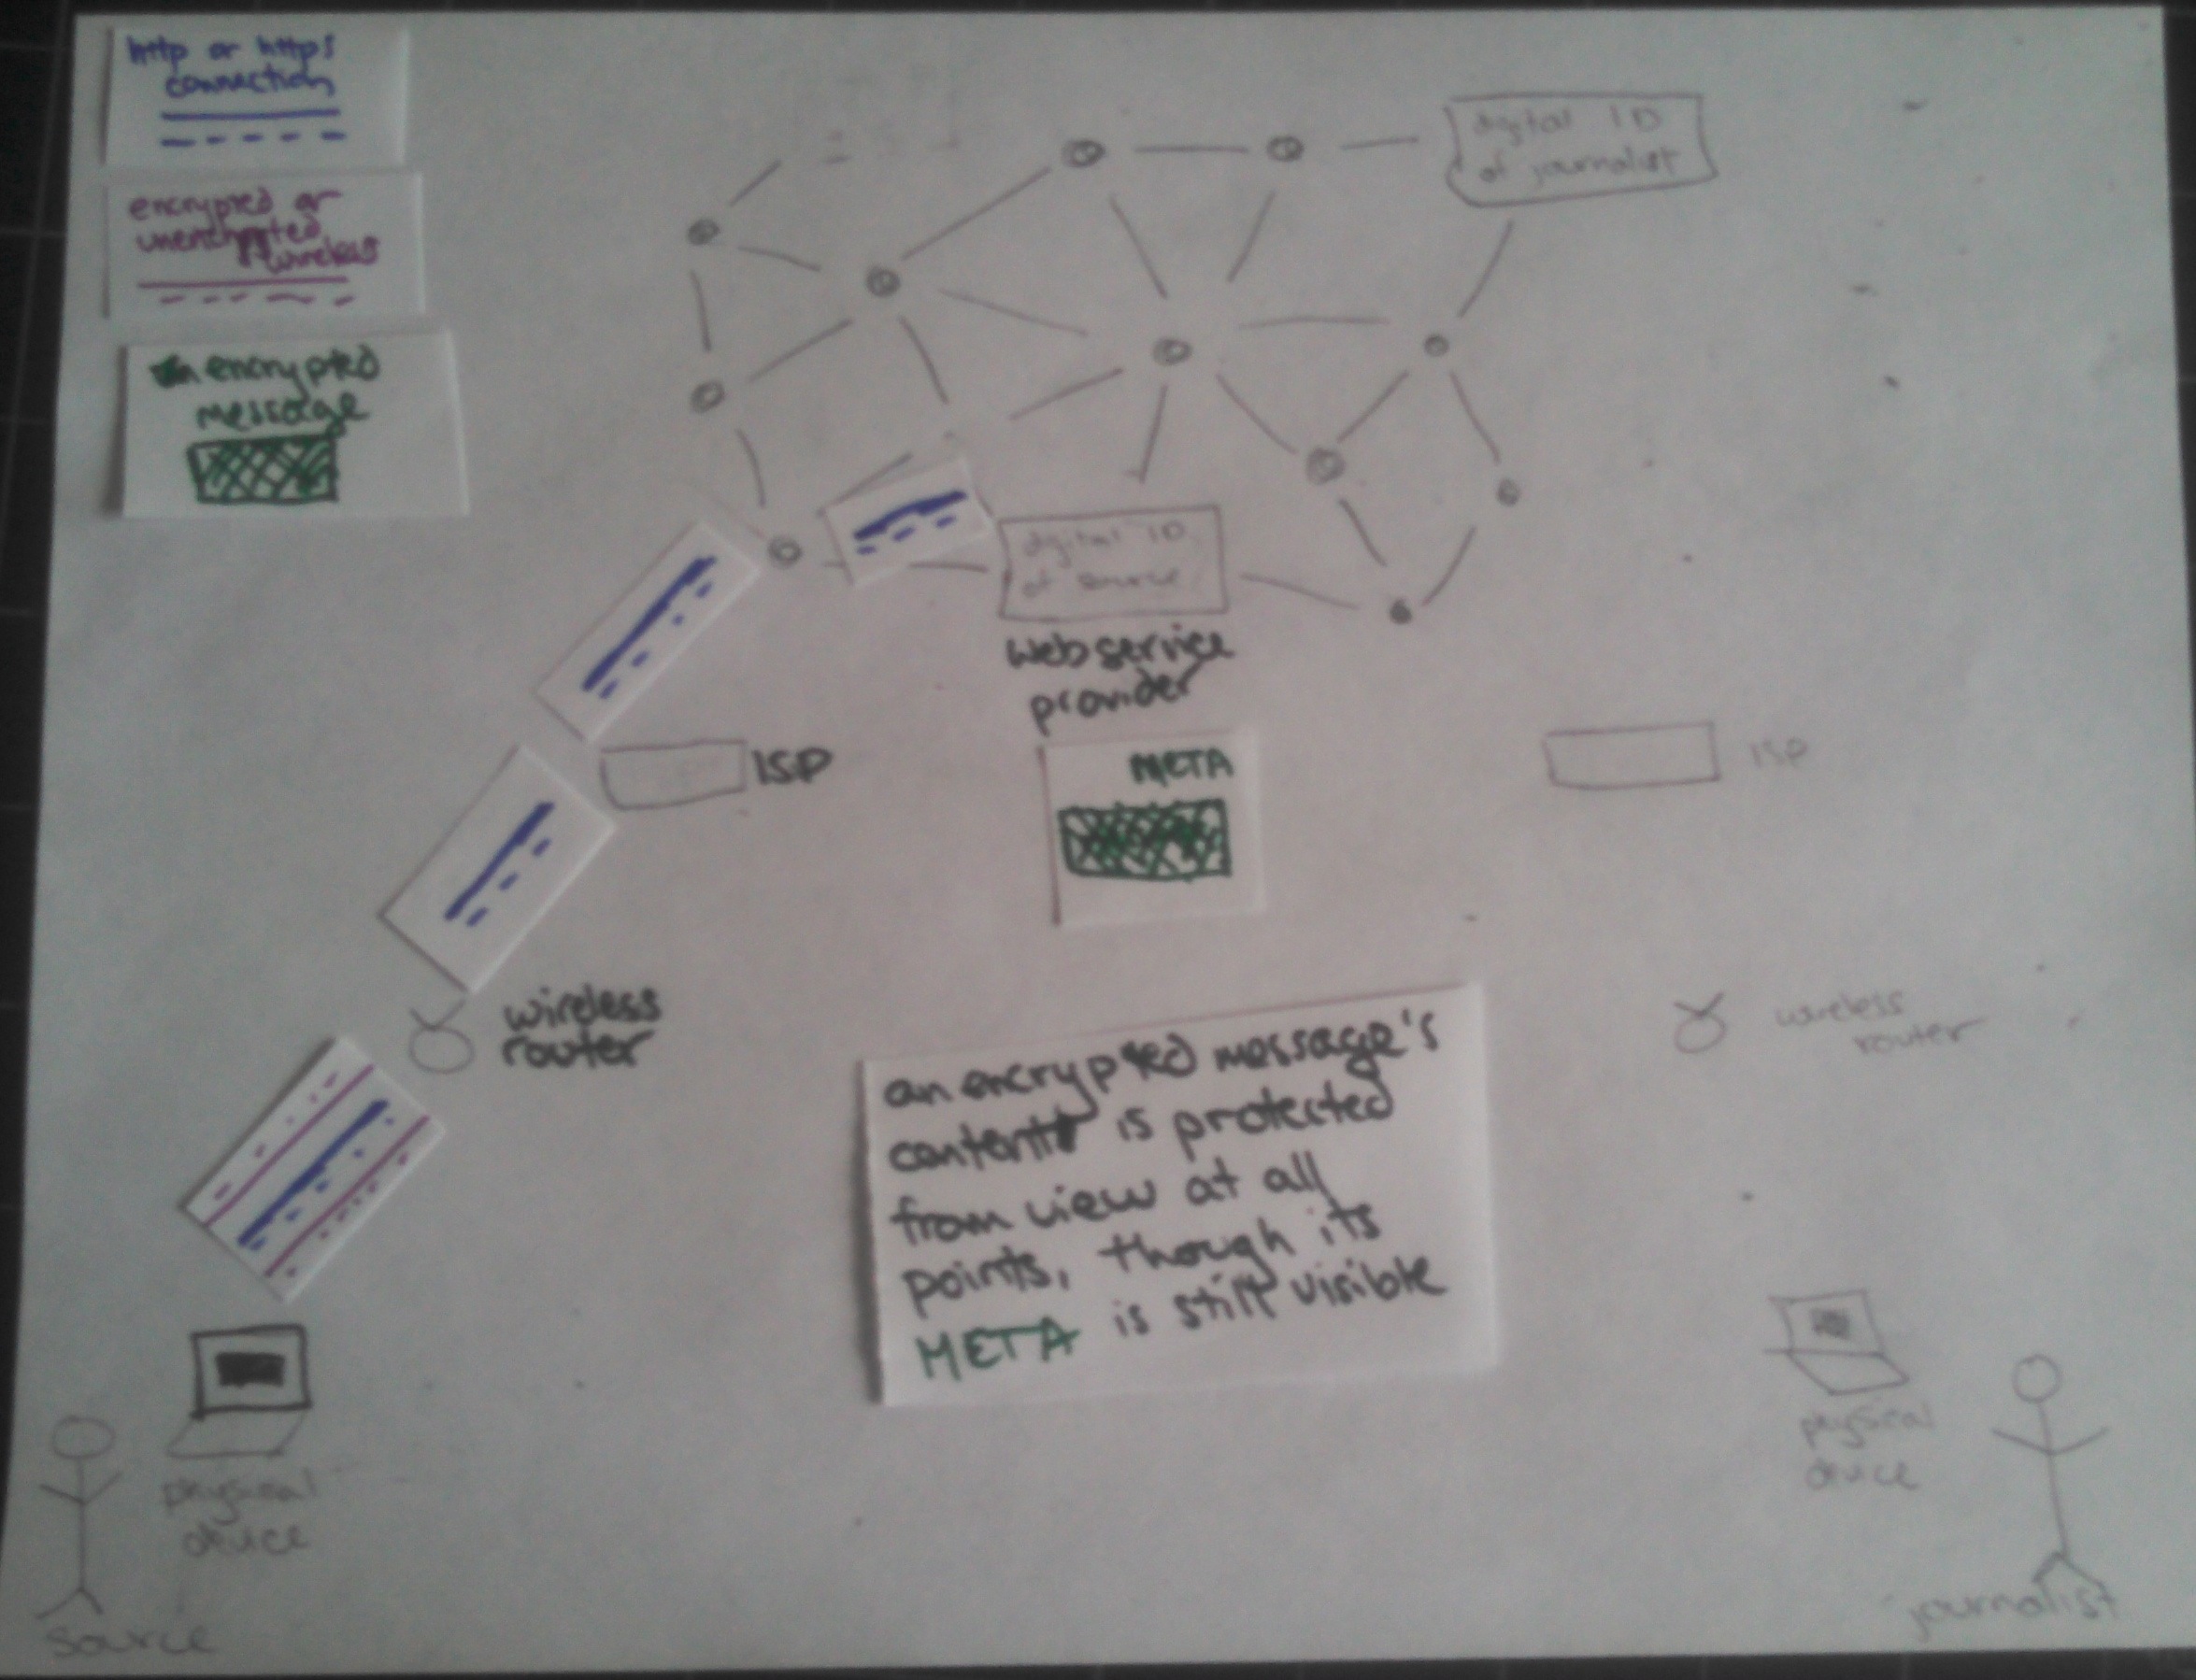 http or https
connection
encrypted or
unencrypted
wireless
encrypted
message
digital ID
of journalist
digital ID
of source
web service
provider
ISP
META
ISP
wireless
router
wireless
router
an encrypted message's
content is protected
from view at all
points, though its
META is still visible
physical
device
physical
device
source
journalist